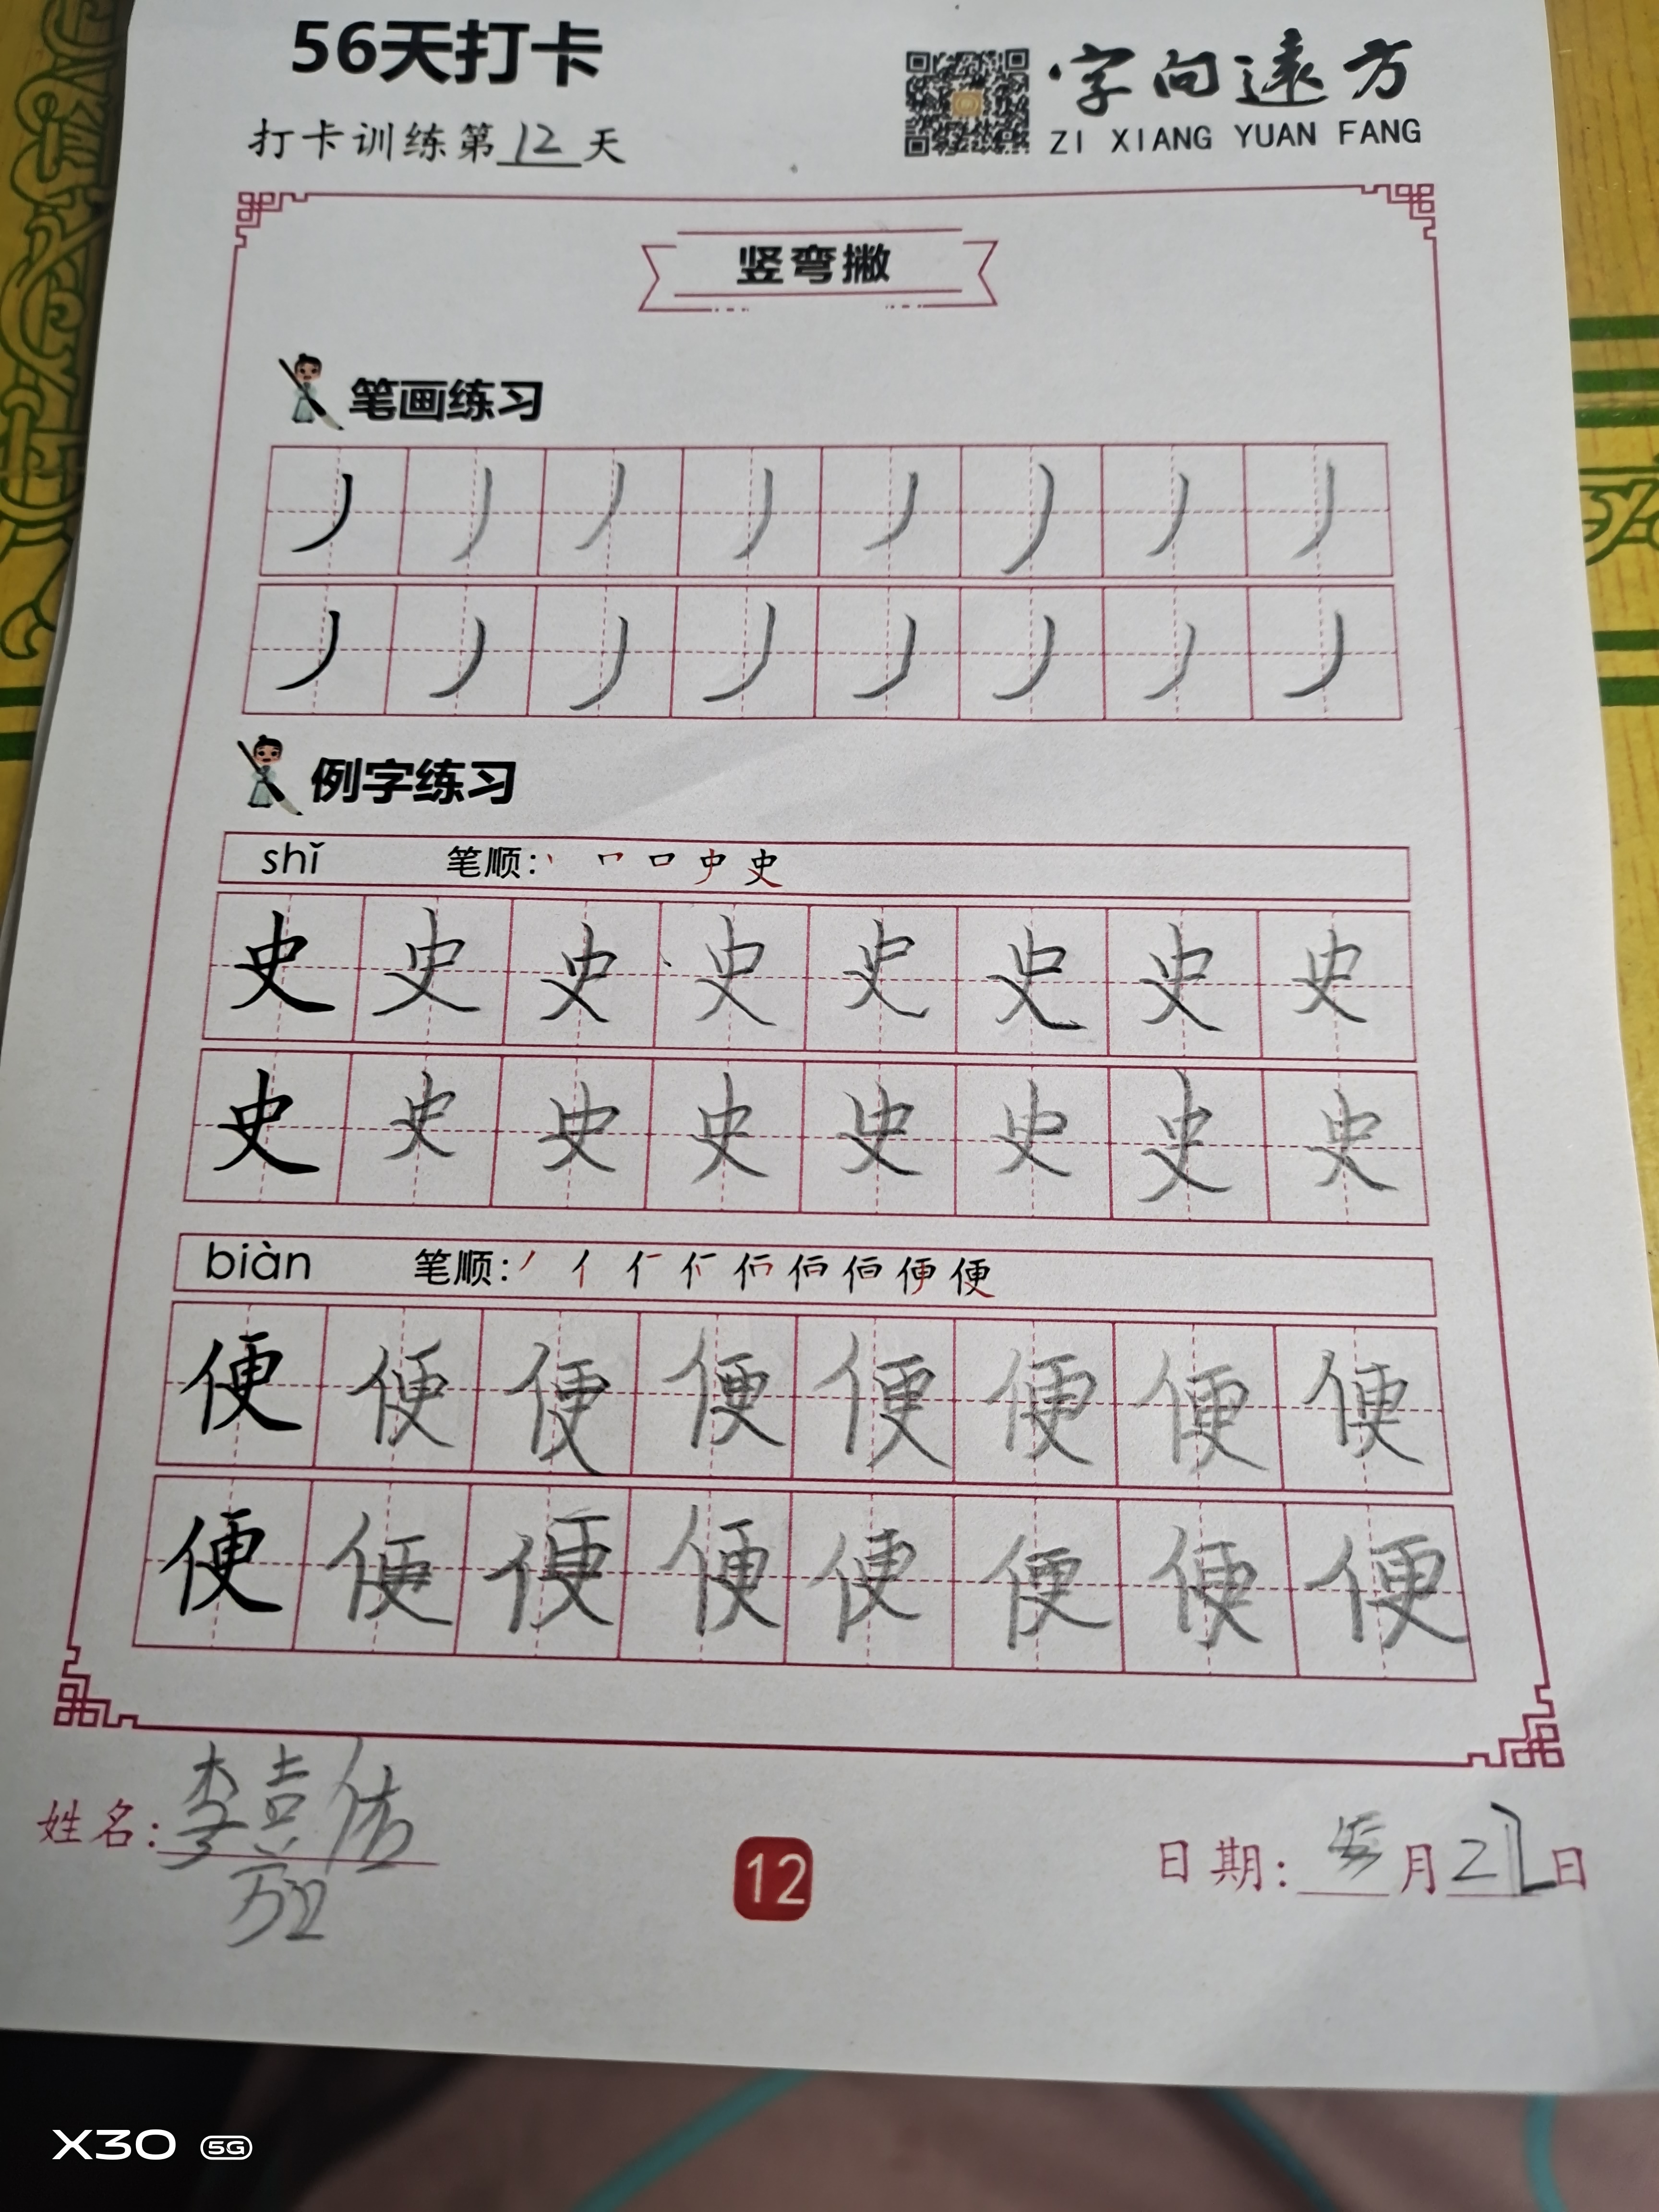 56天打卡
字向遠方
ZI XIANG YUAN FANG
打卡训练第12天
竖弯撇
笔画练习
丿 丿 丿 丿 丿 丿 丿 丿
丿 丿 丿 丿 丿 丿 丿 丿
例字练习
shǐ 笔顺: 史
史 史 史 史 史 史 史 史
史 史 史 史 史 史 史 史
biàn 笔顺: 丿 亻 便
便 便 便 便 便 便 便 便
便 便 便 便 便 便 便 便
姓名: 李
12
日期: 月 日
X30 5G